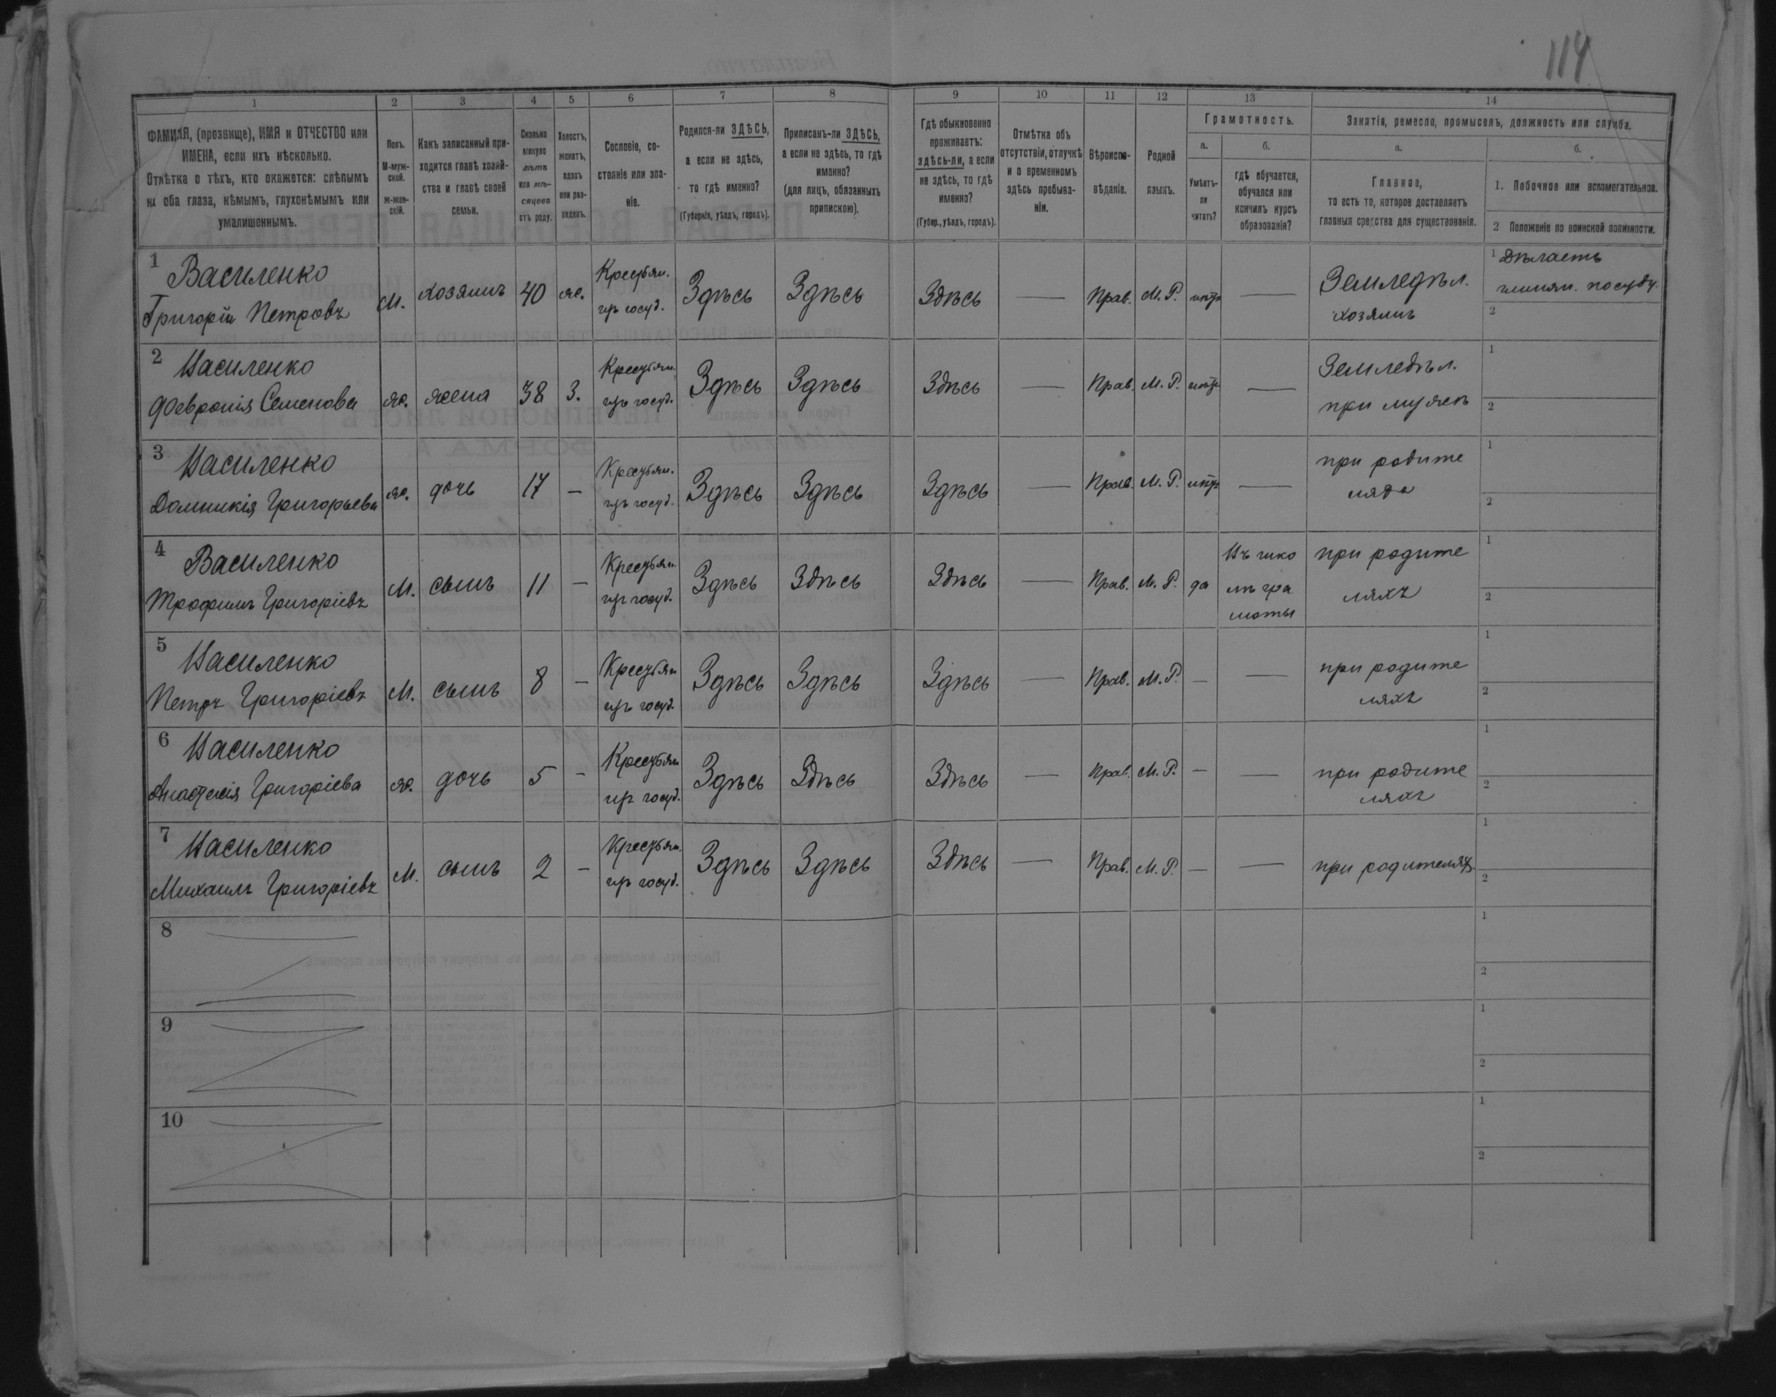 114
1 2 3 4 5 6 7 8 9 10 11 12 13 14
ФАМИЛІЯ, (прозвище), ИМЯ и ОТЧЕСТВО или
ИМЕНА, если ихъ нѣсколько.
Отмѣтка о тѣхъ, кто окажется: слѣпымъ
на оба глаза, нѣмымъ, глухонѣмымъ или
умалишеннымъ.
Полъ.
М-муж-
ской.
ж-жен-
скій.
Какъ записанный при-
ходится главѣ хозяй-
ства и главѣ своей
семьи.
Сколько
минуло
лѣтъ
или мѣ-
сяцевъ
отъ роду.
Холостъ,
женатъ,
вдовъ
или раз-
веденъ.
Сословіе, со-
стояніе или зва-
ніе.
Родился-ли ЗДѢСЬ,
а если не здѣсь,
то гдѣ именно?
(Губернія, уѣздъ, городъ).
Приписанъ-ли ЗДѢСЬ,
а если не здѣсь, то гдѣ
именно?
(для лицъ, обязанныхъ
припискою).
Гдѣ обыкновенно
проживаетъ:
здѣсь-ли, а если
не здѣсь, то гдѣ
именно?
(Губер., уѣздъ, городъ).
Отмѣтка объ
отсутствіи, отлучкѣ
и о временномъ
здѣсь пребыва-
ніи.
Вѣроиспо-
вѣданіе.
Родной
языкъ.
Грамотность.
а.
Умѣетъ-
ли
читать?
б.
гдѣ обучается,
обучался или
кончилъ курсъ
образованія?
Занятія, ремесло, промыселъ, должность или служба.
а.
Главное,
то есть то, которое доставляетъ
главныя средства для существованія.
б.
1. Побочное или вспомогательное.
2 Положеніе по воинской повинности.
1 Василенко
Григорій Петровъ М. хозяинъ 40 ж. Крестьян. изъ госуд. Здѣсь Здѣсь Здѣсь — Прав. М. Р. нѣтъ — Земледѣл. хозяинъ
1 Дѣлаетъ
глинян. посуду.
2
2 Василенко
Февронія Семенова ж. жена 38 З. Крестьян. изъ госуд. Здѣсь Здѣсь Здѣсь — Прав. М. Р. нѣтъ — Земледѣл. при мужѣ
1
2
3 Василенко
Домникія Григорьева ж. дочь 17 — Крестьян. изъ госуд. Здѣсь Здѣсь Здѣсь — Прав. М. Р. нѣтъ — при родите ляхъ
1
2
4 Василенко
Трофимъ Григоріевъ М. сынъ 11 — Крестьян. изъ госуд. Здѣсь Здѣсь Здѣсь — Прав. М. Р. да Въ шко лѣ гра моты при родите ляхъ
1
2
5 Василенко
Петръ Григоріевъ М. сынъ 8 — Крестьян изъ госуд. Здѣсь Здѣсь Здѣсь — Прав. М. Р. — — при родите ляхъ
1
2
6 Василенко
Анастасія Григоріева ж. дочь 5 — Крестьян изъ госуд. Здѣсь Здѣсь Здѣсь — Прав. М. Р. — — при родите ляхъ
1
2
7 Василенко
Михаилъ Григоріевъ М. сынъ 2 — Крестьян. изъ госуд. Здѣсь Здѣсь Здѣсь — Прав. М. Р. — — при родителяхъ
1
2
8
1
2
9
1
2
10
1
2